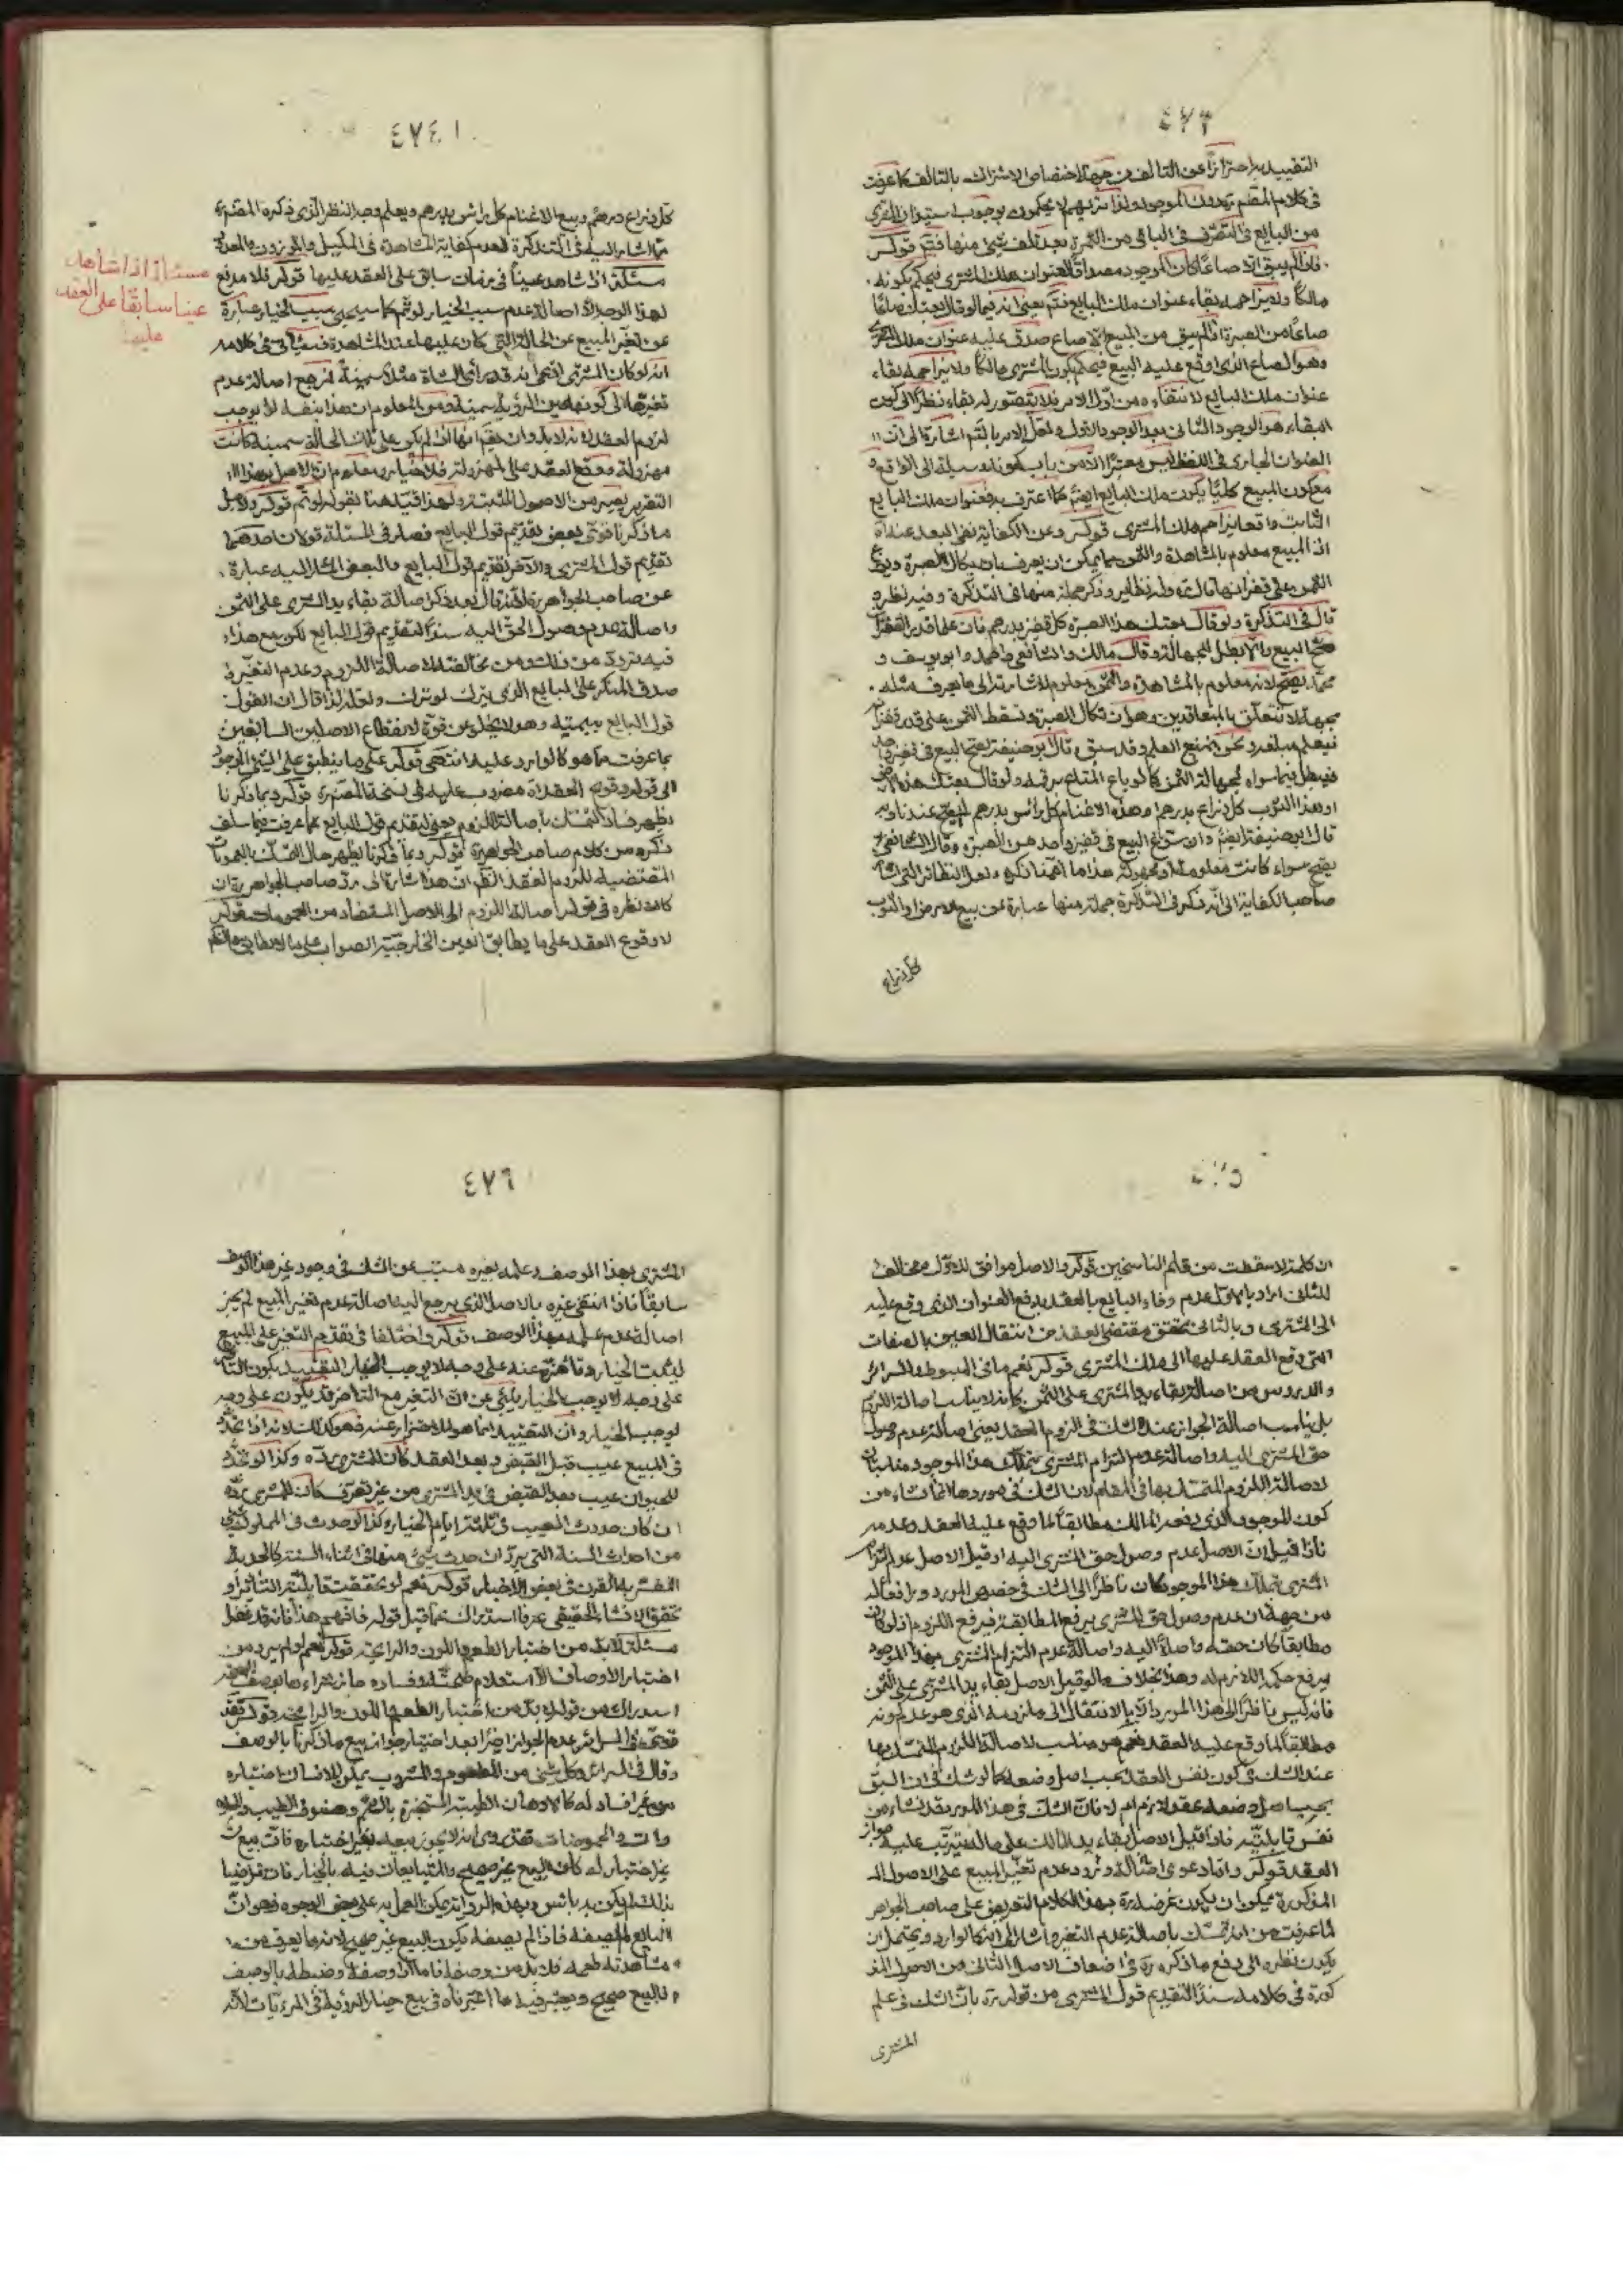 ٤٧٣
التقييد به احترازا عن التالف من جهة اختصاص الاشتراك بالتالف كما عرفت
في كلام المقدم تعدون الموجود ولذا تريهم لا يحكمون بوجوب استيذان المشترى
من البايع في التصرف في الباقي من الثمرة بعد تلف شئ منها فتم قوله
فاذا لم يبق الا صاعا كان الموجود مصداقا لعنوان ملك المشترى فيحكم بكونه
مالكا ولا يزاحمه بقاء عنوان ملك البايع فتم يعني انه فيما لو قال بعتك صاعا
صاعا من الصبرة اذا لم يبق من المبيع الا صاع صدق عليه عنوان ملك المشترى
وهو الصاع الذى اوقع عليه البيع فيحكم بكون المشترى مالكا ولا يزاحمه بقاء
عنوان ملك البايع لانتفاءه من اول الامر فلا يتصور له بقاء نظرا الى كون
البقاء هو الوجود الثاني بعد الوجود الاول ولعل الامر بالتم اشارة الى ان
العنوان الجارى في اللفظ ليس معتبرا الا من باب كونه وسيلة الى الواقع و
مع كون المبيع كليا يكون ملك البايع ايضا كما اعترف به فعنوان ملك البايع
الثابت واقعا يزاحم ملك المشترى قوله وعن الكفاية نفى البعد عنه اذ
اذ المبيع معلوم بالمشاهدة والثمن مما يمكن ان يعرف بان يكال الصبرة ويوزع
الثمن على قفزانها قال وله نظاير وذكر جملة منها في التذكرة وفيه نظر
قال في التذكرة ولو قال بعتك هذه الصبرة كل قفيز بدرهم فان علما قدر القفزان
صح البيع والا بطل للجهالة وقال مالك والشافعي واحمد وابو يوسف و
محمد يصح لانه معلوم بالمشاهدة والثمن معلوم للاشارته الى ما يعرف مثله
بجهة لا تتعلق بالمتعاقدين وهو ان تكال الصبرة ونسقط الثمن على قدر قفزانها
فيعلم مبلغه ونحن نمنع العلم وقد سبق وقال ابو حنيفة يصح البيع في قفيز واحد
فيبطل فيما سواه لجهالة الثمن كما لو باع المتاع برقمه ولو قال بعتك هذه الارض
او هذا الثوب كل ذراع بدرهم او هذه الاغنام كل راس بدرهم لم يصح عندنا وبه
قال ابو حنيفة ايضا وان سوغ البيع في قفيز واحد من الصبرة وقال الشافعي
يصح سواء كانت معلومة او مجهولة هذا ما اهمنا ذكره ولعل النظائر التي اشار
صاحب الكفاية الى انه ذكر في التذكرة جملة منها عبارة عن بيع الارض او الثوب
كل ذراع
٤٧٤
كل ذراع درهم وبيع الاغنام كل راس بدرهم ويعلم وجه النظر الذى ذكره المصنف
مما اشار اليه في التذكرة لعدم كفاية المشاهدة في المكيل والموزون والمعدود
مسئلة اذا شاهد عينا في زمان سابق على العقد عليها قوله فلا مدفع
مسئلة اذا شاهد
عينا سابقا على العقد
عليها
لهذا الوجه الا اصالة عدم سبب الخيار لو تم كما سيجئ سبب الخيار عبارة
عن تغير المبيع عن الحالة التي كان عليها عند المشاهدة فسياتي في كلامه
انه لو كان المشترى ادعى انه قد راى الشاة مثلا سمينة لم رجع اصالة عدم
تغيرها الى كونها حين الرؤية سمينة ومن المعلوم ان هذا بنفسه لا يوجب
لزوم العقد لانه لا بد وان يضم انها ان لم يكن على تلك الحالة سمينة كانت
مهزولة فوقع العقد على المهزولة فلا خيار ومعلوم ان الاصل بهذا
التقرير يصير من الاصول المثبتة ولهذا قيد هنا بقوله لو تم قوله ولاجل
ما ذكرنا قوى بعض تقديم قول البايع فصار في المسئلة قولان احدهما
تقديم قول المشترى والاخر تقديم قول البايع والبعض المشار اليه عبارة
عن صاحب الجواهر لانه قال بعد ذكر اصالة بقاء يد المشترى على الثمن
واصالة عدم وصول الحق اليه سندا لتقديم قول البايع لكن مع هذا
فيه تردد من ذلك ومن مخالفته لاصالة اللزوم وعدم التغير و
صدق المنكر على البايع الذى يترك لو ترك ولعله لذا قال ان القول
قول البايع بيمينه وهو لا يخلو عن قوة لانقطاع الاصلين السابقين
بما عرفت مما هو كالوارد عليه انتهى قوله على ما ينطبق على الشئ الموجود
الى قوله وقوع العقد مضروب عليه في نسخة المصنف قوله وبما ذكرنا
يظهر فساد التمسك باصالة اللزوم يعني لتقديم قول البايع كما عرفت فيما سلف
ذكره من كلام صاحب الجواهر قوله وبما ذكرنا يظهر حال التمسك بالعمومات
المقتضية للزوم العقد الظ ان هذا اشارة الى رد صاحب الجواهر ان
كان نظره في قوله اصالة اللزوم الى الاصل المستفاد من العمومات قوله
لا وقوع العقد على ما يطابق العين الخارجية الصواب على ما لا يطابق والظ
٤٧٥
ان كلمة لا سقطت من قلم الناسخين قوله والاصل موافق للاول ومخالف
للثاني اراد بالاول عدم وفاء البايع بالعقد بدفع العنوان الذى وقع عليه
الى المشترى وبالثاني تحقق مقتضى العقد من انتقال العين بالصفات
التي وقع العقد عليها الى ملك المشترى قوله نعم ما في المبسوط والسرائر
والدروس من اصالة بقاء يد المشترى على الثمن كانه لا يناسب اصالة اللزوم
بل يناسب اصالة الجواز عند الشك في لزوم العقد يعني اصالة عدم وصول
حق المشترى اليه واصالة عدم التزام المشترى بتملك هذا الموجود مناسبتان
لاصالة اللزوم المتمسك بها في المقام لان الشك في موردها انما نشاء من
كون الموجود الذى دفعه المالك مطابقا لما وقع عليه العقد وعدمه
فاذا قيل ان الاصل عدم وصول حق المشترى اليه او قيل الاصل عدم التزام
المشترى بتملك هذا الموجود كان ناظرا الى الشك في خصوص المورد ورافعا له
من جهة ان عدم وصول حق المشترى يرفع المطابقة فيرفع اللزوم اذ لو كان
مطابقا كان حقه واصلا اليه واصالة عدم التزام المشترى بهذا الموجود
يرفع حكم اللازم له وهذا بخلاف ما لو قيل الاصل بقاء يد المشترى على الثمن
فانه ليس ناظرا الى هذا المورد الا بالانتقال الى ملزومه الذى هو عدم كونه
مطابقا لما وقع عليه العقد نعم هو مناسب لاصالة اللزوم المتمسك بها
عند الشك في كون نفس العقد بحسب اصل وضعه كما لو شك في ان السبق
بحسب اصل وضعه عقد لازم ام لا فان الشك في هذا المورد قد نشاء من
نفس قابليته فاذا قيل الاصل بقاء يد المالك على ماله فيترتب عليه جواز
العقد قوله واما دعوى اصالة ورود عدم تغير المبيع على الاصول
المذكورة يمكن ان يكون غرضه ره بهذا الكلام التعريض على صاحب الجواهر
لما عرفت من انه تمسك باصالة عدم التغير واشار الى انها كالوارد ويحتمل ان
يكون نظره الى دفع ما ذكره ره في اضعاف الاصل الثاني من الاصول المذ
كورة في كلامه سندا لتقديم قول المشترى من قوله يرد بان الشك في علم
المشترى
٤٧٦
المشترى بهذا الوصف وعلمه بغيره مسبب عن الشك في وجود غير هذا الوصف
سابقا فاذا انتفى غيره بالاصل الذى يرجع اليه اصالة عدم تغير المبيع لم يجز
اصالة عدم علمه بهذا الوصف قوله ولو اختلفا في تقدم التغير على البيع
ليثبت الخيار وتاخره عنه على وجه لا يوجب الخيار التقييد بكون التاخر
على وجه لا يوجب الخيار ينبئ عن ان التغير مع التاخر قد يكون على وجه
يوجب الخيار وان التقييد انما هو للاحتراز عنه فهو كذلك لانه اذا تجدد
في المبيع عيب قبل القبض وبعد العقد كان للمشترى رده وكذا لو تجدد
للحيوان عيب بعد القبض في يد المشترى من غير تصرف كان للمشترى رده
ان كان حدوث العيب في ثلثة ايام الخيار وكذا لو حدث في المملوك شئ
من احداث السنة التي يرد ان حدث شئ منها في اثناء السنة كالحدبة
المفسرة بالقرن في بعض الاخبار قوله نعم لو تحققت قابلية التاثير او
تحقق الانشاء الحقيقي عرفا استدراك عما قبل قوله فافهم هذا فانه قد غفل
مسئلة لا بد من اختبار الطعم واللون والرايحة قوله نعم لو لم يرد من
اختبار الاوصاف الا استعلام صحته وفساده جاز شراءه بالوصف
استدراك من قوله لا بد من اختبار الطعم واللون والرايحة قوله فقد
قوى في السرائر عدم الجواز اخيرا بعد اختيار جواز بيع ما ذكرنا بالوصف
وقال في السرائر وكل شئ من المطعوم والمشروب يمكن للانسان اختباره
من غير افساد له كالادهان الطيبة المستخبرة بالشم وصنوف الطيب والحلوى
والحموضات فقد روى انه لا يجوز بيعه بغير اختباره فان بيع من
غير اختبار له كان البيع غير صحيح والمتبايعان فيه بالخيار فان تراضيا
بذلك لم يكن به باس وهذه الرواية يمكن العمل بها على بعض الوجوه فهو ان
البايع لم يصفه فاذا لم يصفه يكون البيع غير صحيح لانه ما يعرف من
مشاهدته طعمه فلا بد من وصفه فاما اذا وصفه وضبطه بالوصف
فالبيع صحيح ويعتبر فيه ما اعتبرناه في بيع خيار الرؤية في المرئيات لانه